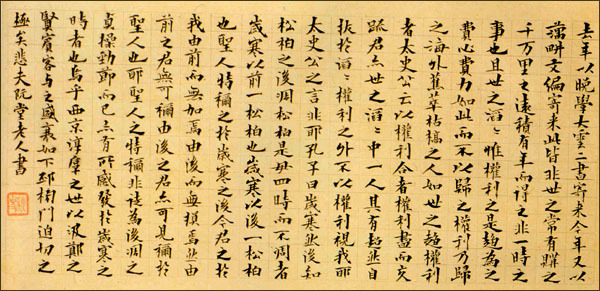 去年以晚學大雲二書寄來今年又以
藕畊文編寄來此皆非世之常有購之
千万里之遠積有年而得之非一時之
事也且世之滔〻惟權利之是趨爲之
費心費力如此而不以歸之權利乃歸
之海外蕉萃枯槁之人如世之趨權利
者太史公云以權利合者權利盡而交
踈君亦世之滔〻中一人其有超然自
拔於滔〻權利之外不以權利視我耶
太史公之言非耶孔子曰歲寒然後知
松柏之後凋松柏是毋四時而不凋者
歲寒以前一松柏也歲寒以後一松柏
也聖人特稱之於歲寒之後今君之於
我由前而無加焉由後而無損焉然由
前之君無可稱由後之君亦可見稱於
聖人也耶聖人之特稱非徒爲後凋之
貞操勁節而已亦有所感發於歲寒之
時者也烏乎西京淳厚之世以汲鄭之
賢賓客與之盛衰如下邳榜門迫切之
極矣悲夫阮堂老人書